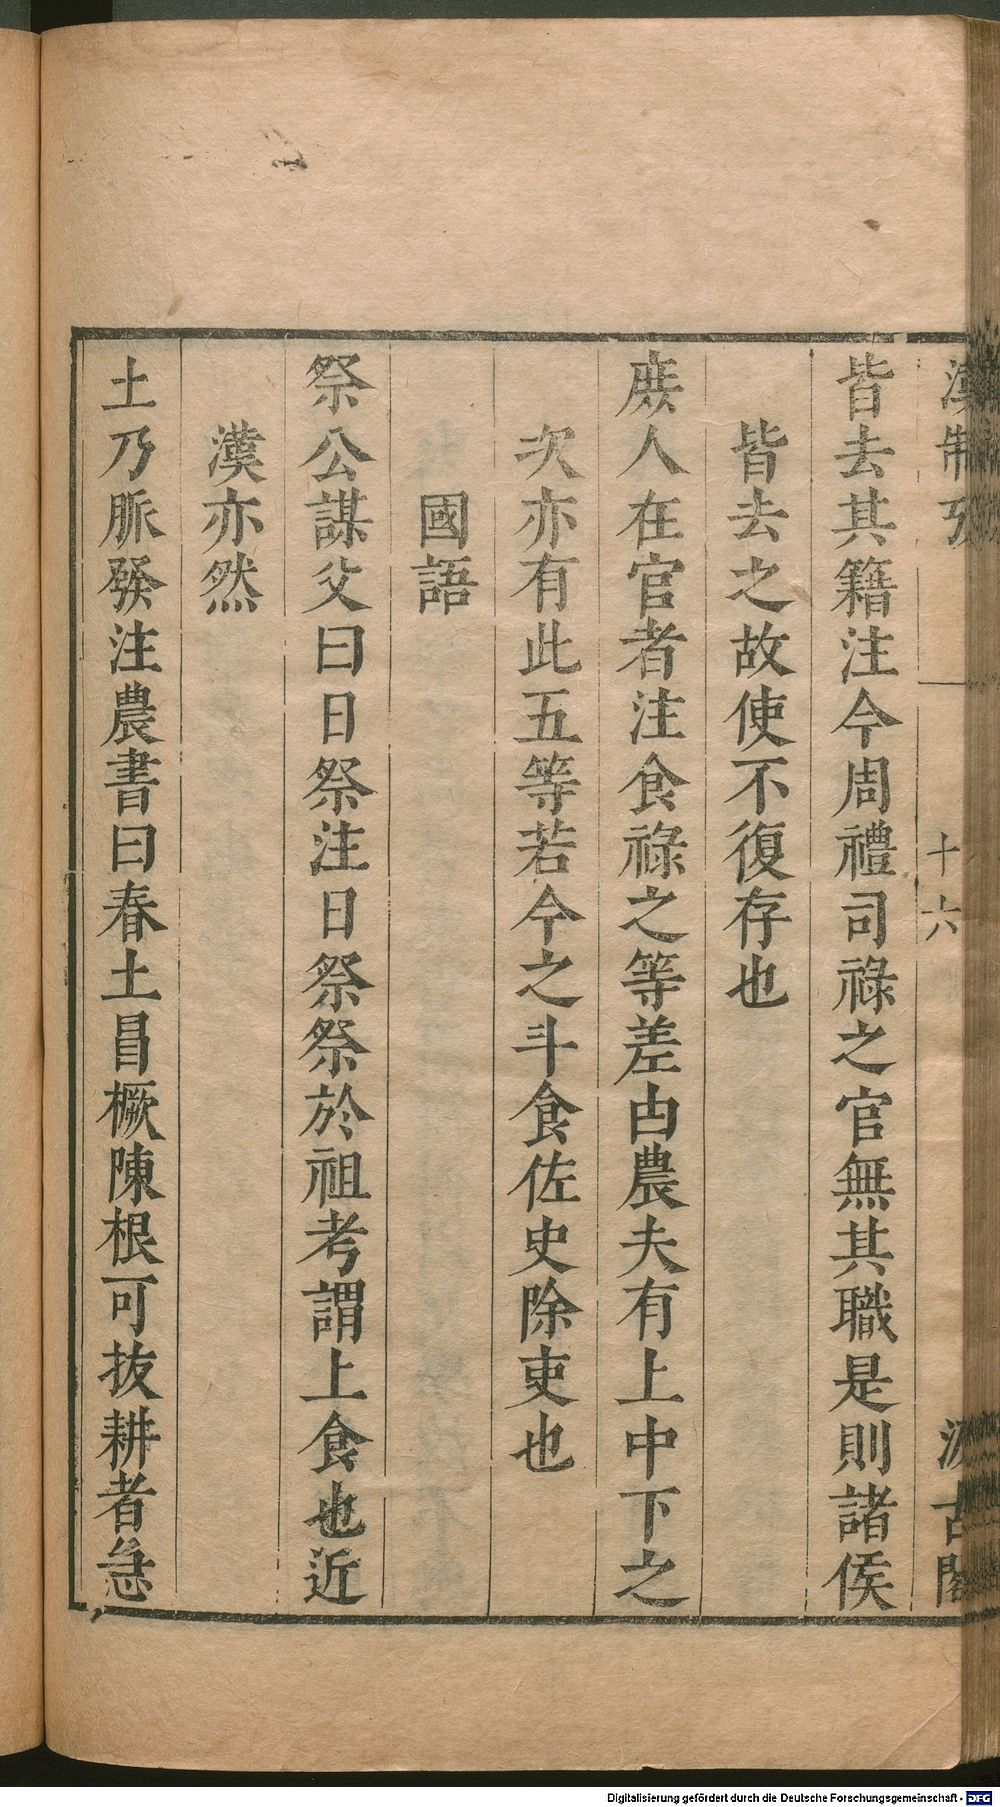 漢制攷 十六 汲古閣
皆去其籍注今周禮司祿之官無其職是則諸侯
皆去之故使不復存也
庻人在官者注食祿之等差古農夫有上中下之
次亦有此五等若今之斗食佐史除吏也
國語
祭公謀父曰日祭注日祭祭於祖考謂上食也近
漢亦然
土乃脈發注農書曰春土冒橛陳根可拔耕者急
Digitalisierung gefördert durch die Deutsche Forschungsgemeinschaft - DFG